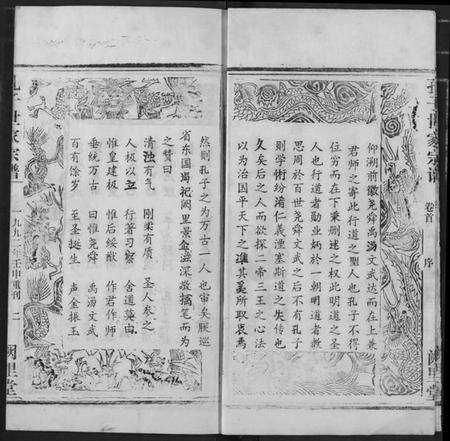 孔子世家宗譜
卷首
序
闕里堂
仰溯前徽堯舜禹湯文武達而在上兼
君師之寄此行道之聖人也孔子不得
位窮而在下秉刪述之權此明道之聖
人也行道者勛業炳於一朝明道者教
思周於百世堯舜文武之後不有孔子
則學術紛淆仁義湮塞斯道之失傳也
久矣后之人而欲探二帝三王之心法
以為治國平天下之准其奚所取衷焉
然則孔子之為万古一人也審矣朕巡
省东国謁祀闕里景企滋深敬摛笔而为
之赞曰
清浊有气 剛柔有质 圣人参之
人极以立 行著习察 舍道莫由
惟皇建极 惟后绥猷 作君作师
垂统万古 曰惟堯舜 禹湯文武
百有馀岁 至圣挺生 声金振玉
孔子世家宗譜
一九九二年壬申重刊
二
闕里堂